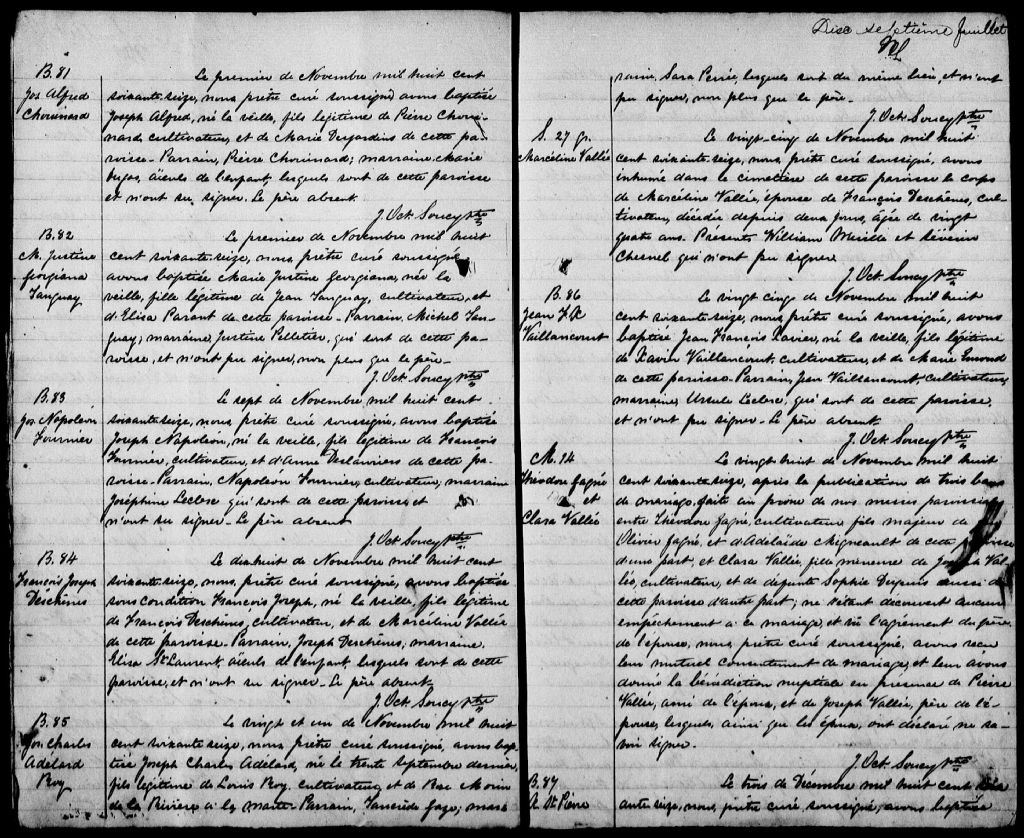 B.81
Jos Alfred
Chouinard
Le premier de Novembre mil huit cent
soixante-seize, nous prêtre curé soussigné avons baptisé
Joseph Alfred, né la veille, fils légitime de Pierre Choui-
nard, cultivateur, et de Marie Desjardins de cette pa-
roisse. Parrain, Pierre Chouinard; marraine, Marie
aïeuls de l'enfant, lesquels sont de cette paroisse
et n'ont su signer. Le père absent.
J. Oct. Soucy Ptre
B.82
M. Justine
Georgiana
Tanguay
Le premier de Novembre mil huit
cent soixante-seize, nous prêtre curé soussigné
avons baptisée Marie Justine Georgiana, née la
veille, fille légitime de Jean Tanguay, cultivateur, et
d'Elisa Parant de cette paroisse. Parrain, Michel Tan-
guay; marraine, Justine Pelletier, qui sont de cette pa-
roisse, et n'ont pu signer, non plus que le père.
J. Oct. Soucy Ptre
B.83
Jos Napoléon
Fournier
Le sept de Novembre mil huit cent
soixante-seize, nous prêtre curé soussigné, avons baptisé
Joseph Napoléon, né la veille, fils légitime de François
Fournier, cultivateur, et d'Anne Deslauriers de cette pa-
roisse. Parrain, Napoléon Fournier, cultivateur, marraine
Joséphine Leclerc qui sont de cette paroisse et
n'ont su signer. Le père absent
J. Oct Soucy Ptre
B.84
François Joseph
Deschênes
Le dixhuit de Novembre mil huit cent
soixante-seize, nous, prêtre curé soussigné, avons baptisé
sous condition François Joseph, né la veille, fils légitime
de François Deschênes, cultivateur, et de Marceline Vallée
de cette paroisse. Parrain, Joseph Deschênes; marraine
Elisa St Laurent, aïeuls de l'enfant, lesquels sont de cette
paroisse, et n'ont su signer. Le père absent.
J. Oct. Soucy Ptre
B.85
Jos. Charles
Adélard
Roy
Le vingt et un de Novembre mil huit
cent soixante seize, nous prêtre curé soussigné, avons bap-
tisé Joseph Charles Adélard, né le trente septembre dernier,
fils légitime de Louis Roy, cultivateur, et de Morin
de la Rivière à la Marte. Parrain, Gagné, mar-
Dix septième Juillet
raine, Sara Perrée, lesquels sont du même lieu, et n'ont
pu signer, non plus que le père.
J. Oct. Soucy Ptre
S. 27 gr.
Marcéline Vallée
Le vingt-cinq de Novembre mil huit
cent soixante-seize, nous, prêtre curé soussigné, avons
inhumé dans le cimetière de cette paroisse le corps
de Marcéline Vallée, épouse de François Deschênes, cul-
tivateur, décédée depuis deux jours, âgée de vingt
quatre ans. Présents William et Séverin
Chesnel qui n'ont pu signer
J. Oct. Soucy Ptre
B.86
Jean F. X
Vaillancourt
Le vingt cinq de Novembre mil huit
cent soixante-seize, nous prêtre curé soussigné, avons
baptisé Jean François Xavier, né la veille, fils légitime
de Xavier Vaillancourt, cultivateur, et de Marie Emond
de cette paroisse. Parrain, Jean Vaillancourt, cultivateur,
marraine, Ursule Leclerc, qui sont de cette paroisse,
et n'ont pu signer. Le père absent.
J. Oct. Soucy Ptre
M. 14
Théodore Gagné
et
Clara Vallée
Le vingt-huit de Novembre mil huit
cent soixante-seize, après la publication de trois bans
de mariage faite au prône de nos messes paroissiales
entre Théodore Gagné, cultivateur fils majeur de
Olivier Gagné, et d'Adelaïde Migneault de cette paroisse
d'une part, et Clara Vallée, fille mineure de Joseph Val-
lée, cultivateur, et de défunte Sophie Dupuis aussi de
cette paroisse d'autre part; ne s'étant découvert aucun
empêchement à ce mariage, et vû l'agrément du père
de l'épouse, nous, prêtre curé soussigné, avons reçu
leur mutuel consentement de mariage, et leur avons
donné la bénédiction nuptiale en présence de Pierre
Vallée, ami de l'époux, et de Joseph Vallée, père de l'é-
pouse, lesquels, ainsi que les époux, ont déclaré ne sa-
voir signer.
J. Oct. Soucy Ptre
B.87
A. St Pierre
Le trois de Décembre mil huit cent soix-
ante-seize, nous, prêtre curé soussigné, avons baptisé